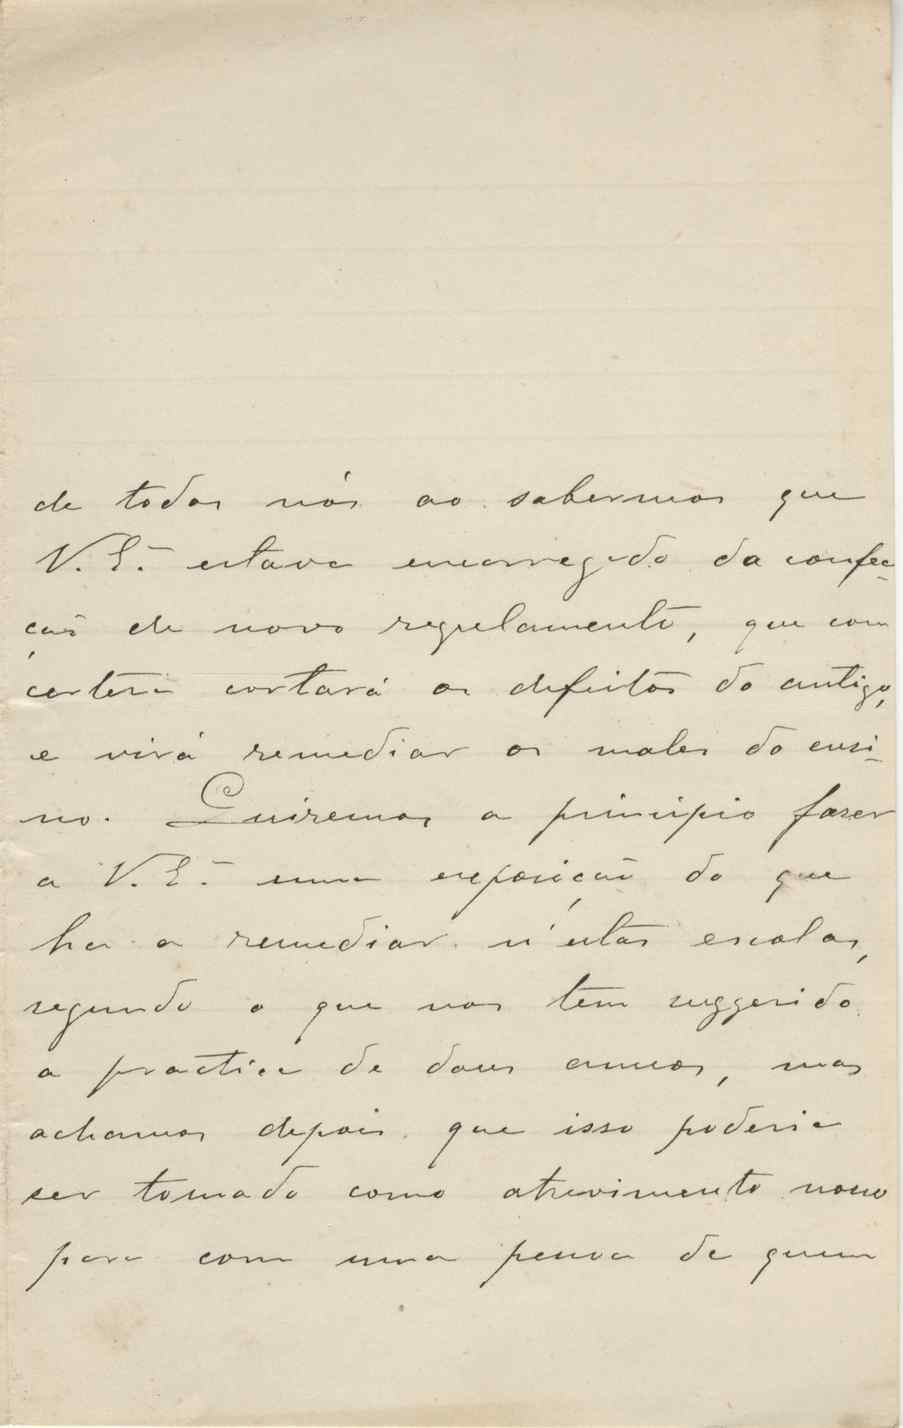 de todos nós ao sabermos que
V. Eª. estava encarregado da confec-
ção de novo regulamento, que com
certeza cortará os defeitos do antigo,
e virá remediar os males do ensi-
no. Quizemos a principio fazer
a V. Eª. uma exposição do que
ha a remediar n'estas escolas,
segundo o que nos tem suggerido
a practica de dous annos, mas
achamos depois que isso poderia
ser tomado como atrevimento nosso
para com uma pessoa de quem